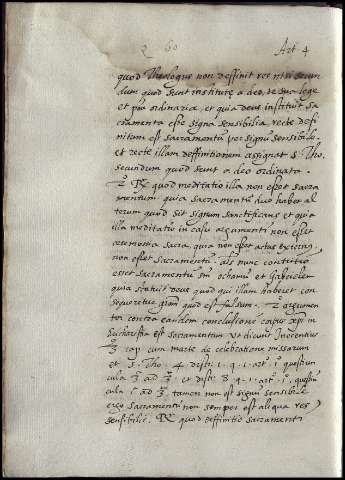 q. 60 Art 4
quod Theologus non deffinit res nisi secun
dum quod sunt institutę a deo, de sua lege
et pn̄a ordinaria, et quia deus instituit sa
cramenta esse signa sensibilia, recte defi
nitum est sacramentū per signū sensibile.
et recte illam deffinitionem assignat S. Tho.
secundum quod sunt a deo ordinata.
quod meditatio illa non esset sacra
mentum quia sacramentū duo habet al
terum quod sit signum sanctificans et quia
illa meditatio in casu argumenti non esset
cerimonia sacra, quia non esset actus exterior,
non esset sacramentū. als nunc contritio
esset sacramentū Ochamū et Gabrielem
quia statuit deus quod qui illam haberet con
sequeretur grām quod est falsum. 2º argumen
tor contra eandem conclusionē corpus xp̄i in
Eucharistia est sacramentum. Ut dicunt Innocentius
3. cap. cum marte de celebratione missarum
et S. Tho. 4. disti. 1. q. 1. art. 1º questiun
cula 3. ad 3. et disti. 8 q. 1. art. 1º. questiū
cula 1. ad 3. tamen non est signū sensibile
ergo sacramentū non semper est aliqua res
sensibilis. quod deffinitio sacramenti